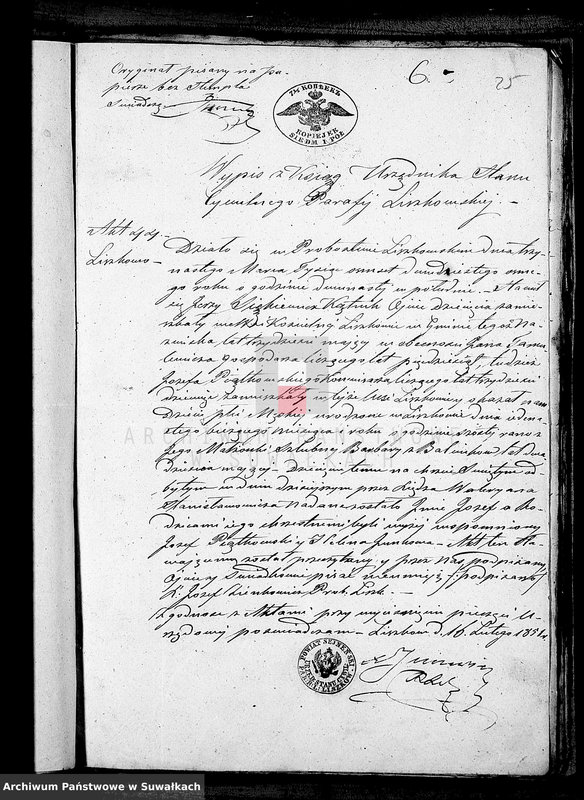 Oryginał pisany na pa-
pierze bez Stempla
Świadczę
6.
25
7½ КОПѢЕКЪ
KOPIEJEK
SIEDM I PÓŁ
Wypis z Ksiąg Urzędnika Stanu
Cywilnego Parafij Liszkowskiej.-
Akt 44.
Liszkowo-
Działo się w Probostwie Liszkowskim dnia trzy-
nastego Marca Tysiąc ośmset dwudziestego ósme-
go roku o godzinie dwunasty w południe.- Stawił
się Jerzy Kątnik Ojciec dziecięcia zamie-
szkały we Wsi Kościelnej Liszkowie w Gminie tegoż na-
zwiska lat trzydzieści mający w obecności Jana
Gospodarza liczącego lat pięćdziesiąt tudzież
Józefa Piątkowskiego liczącego lat trzydzieści
dziewięć zamieszkały w tejże Wsi Liszkowie y okazał nam
Dziecię płci Męzkiej urodzone w Liszkowie dnia
bieżącego miesiąca i roku o godzinie szosty rano z
Jego Małżonki Szlubny Barbary z lat dwa
dzieścia mający.- Dziecięciu temu na chrzcie Świętym od-
bytym w dniu dzisiejszym przez Księdza Waleryana
Stanisławowicza nadane zostało Imie Józef a Ro-
dzicami jego chrzestnemi byli wyżej wspomniony
Józef Piątkowski y Helena - Akt ten Sta-
wającemu został przeczytany y przez Nas podpisany
Ojciec y Świadkowie pisać nieumieją /: podpisano /
X. Józef Prob. Lisk.-
Zgodność z Aktami przy wyciśnieniu pieczęci U-
rzędowej poświadczam.- Liszkow d. 16 Lutego 1851 r.
POWIAT SEJNEŃSKI
ARCHIWUM PAŃSTWOWE
W SUWAŁKACH
Archiwum Państwowe w Suwałkach